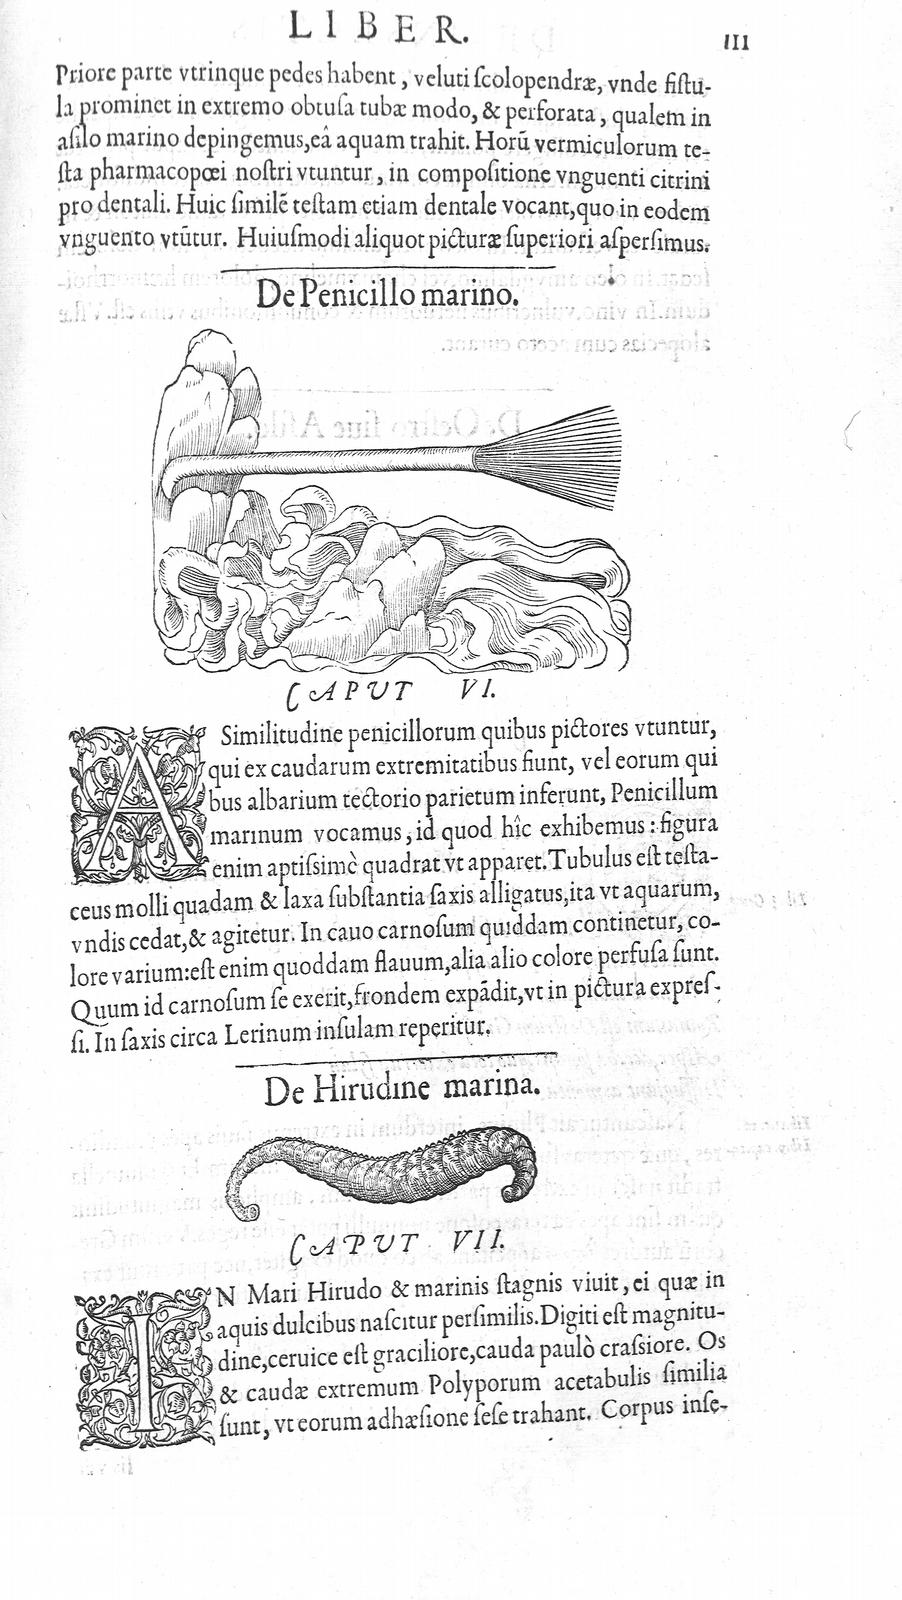 LIBER. III
Priore parte vtrinque pedes habent, veluti ſcolopendræ, vnde fiſtu-
la prominet in extremo obtuſa tubæ modo, & perforata, qualem in
aſilo marino depingemus,eâ aquam trahit. Horũ vermiculorum te-
ſta pharmacopœi noſtri vtuntur, in compoſitione vnguenti citrini
pro dentali. Huic ſimilẽ teſtam etiam dentale vocant,quo in eodem
vnguento vtũtur. Huiuſmodi aliquot picturæ ſuperiori aſperſimus.
De Penicillo marino.
CAPUT VI.
A Similitudine penicillorum quibus pictores vtuntur,
qui ex caudarum extremitatibus fiunt, vel eorum qui
bus albarium tectorio parietum inferunt, Penicillum
marinum vocamus, id quod hîc exhibemus: figura
enim aptiſsimè quadrat vt apparet. Tubulus eſt teſta-
ceus molli quadam & laxa ſubſtantia ſaxis alligatus,ita vt aquarum,
vndis cedat,& agitetur. In cauo carnoſum quiddam continetur, co-
lore varium:eſt enim quoddam flauum,alia alio colore perfuſa ſunt.
Quum id carnoſum ſe exerit,frondem expãdit,vt in pictura expreſ-
ſi. In ſaxis circa Lerinum inſulam reperitur.
De Hirudine marina.
CAPUT VII.
IN Mari Hirudo & marinis ſtagnis viuit, ei quæ in
aquis dulcibus naſcitur perſimilis. Digiti eſt magnitu-
dine,ceruice eſt graciliore,cauda paulò craſsiore. Os
& caudæ extremum Polyporum acetabulis ſimilia
ſunt, vt eorum adhæſione ſeſe trahant. Corpus inſe-